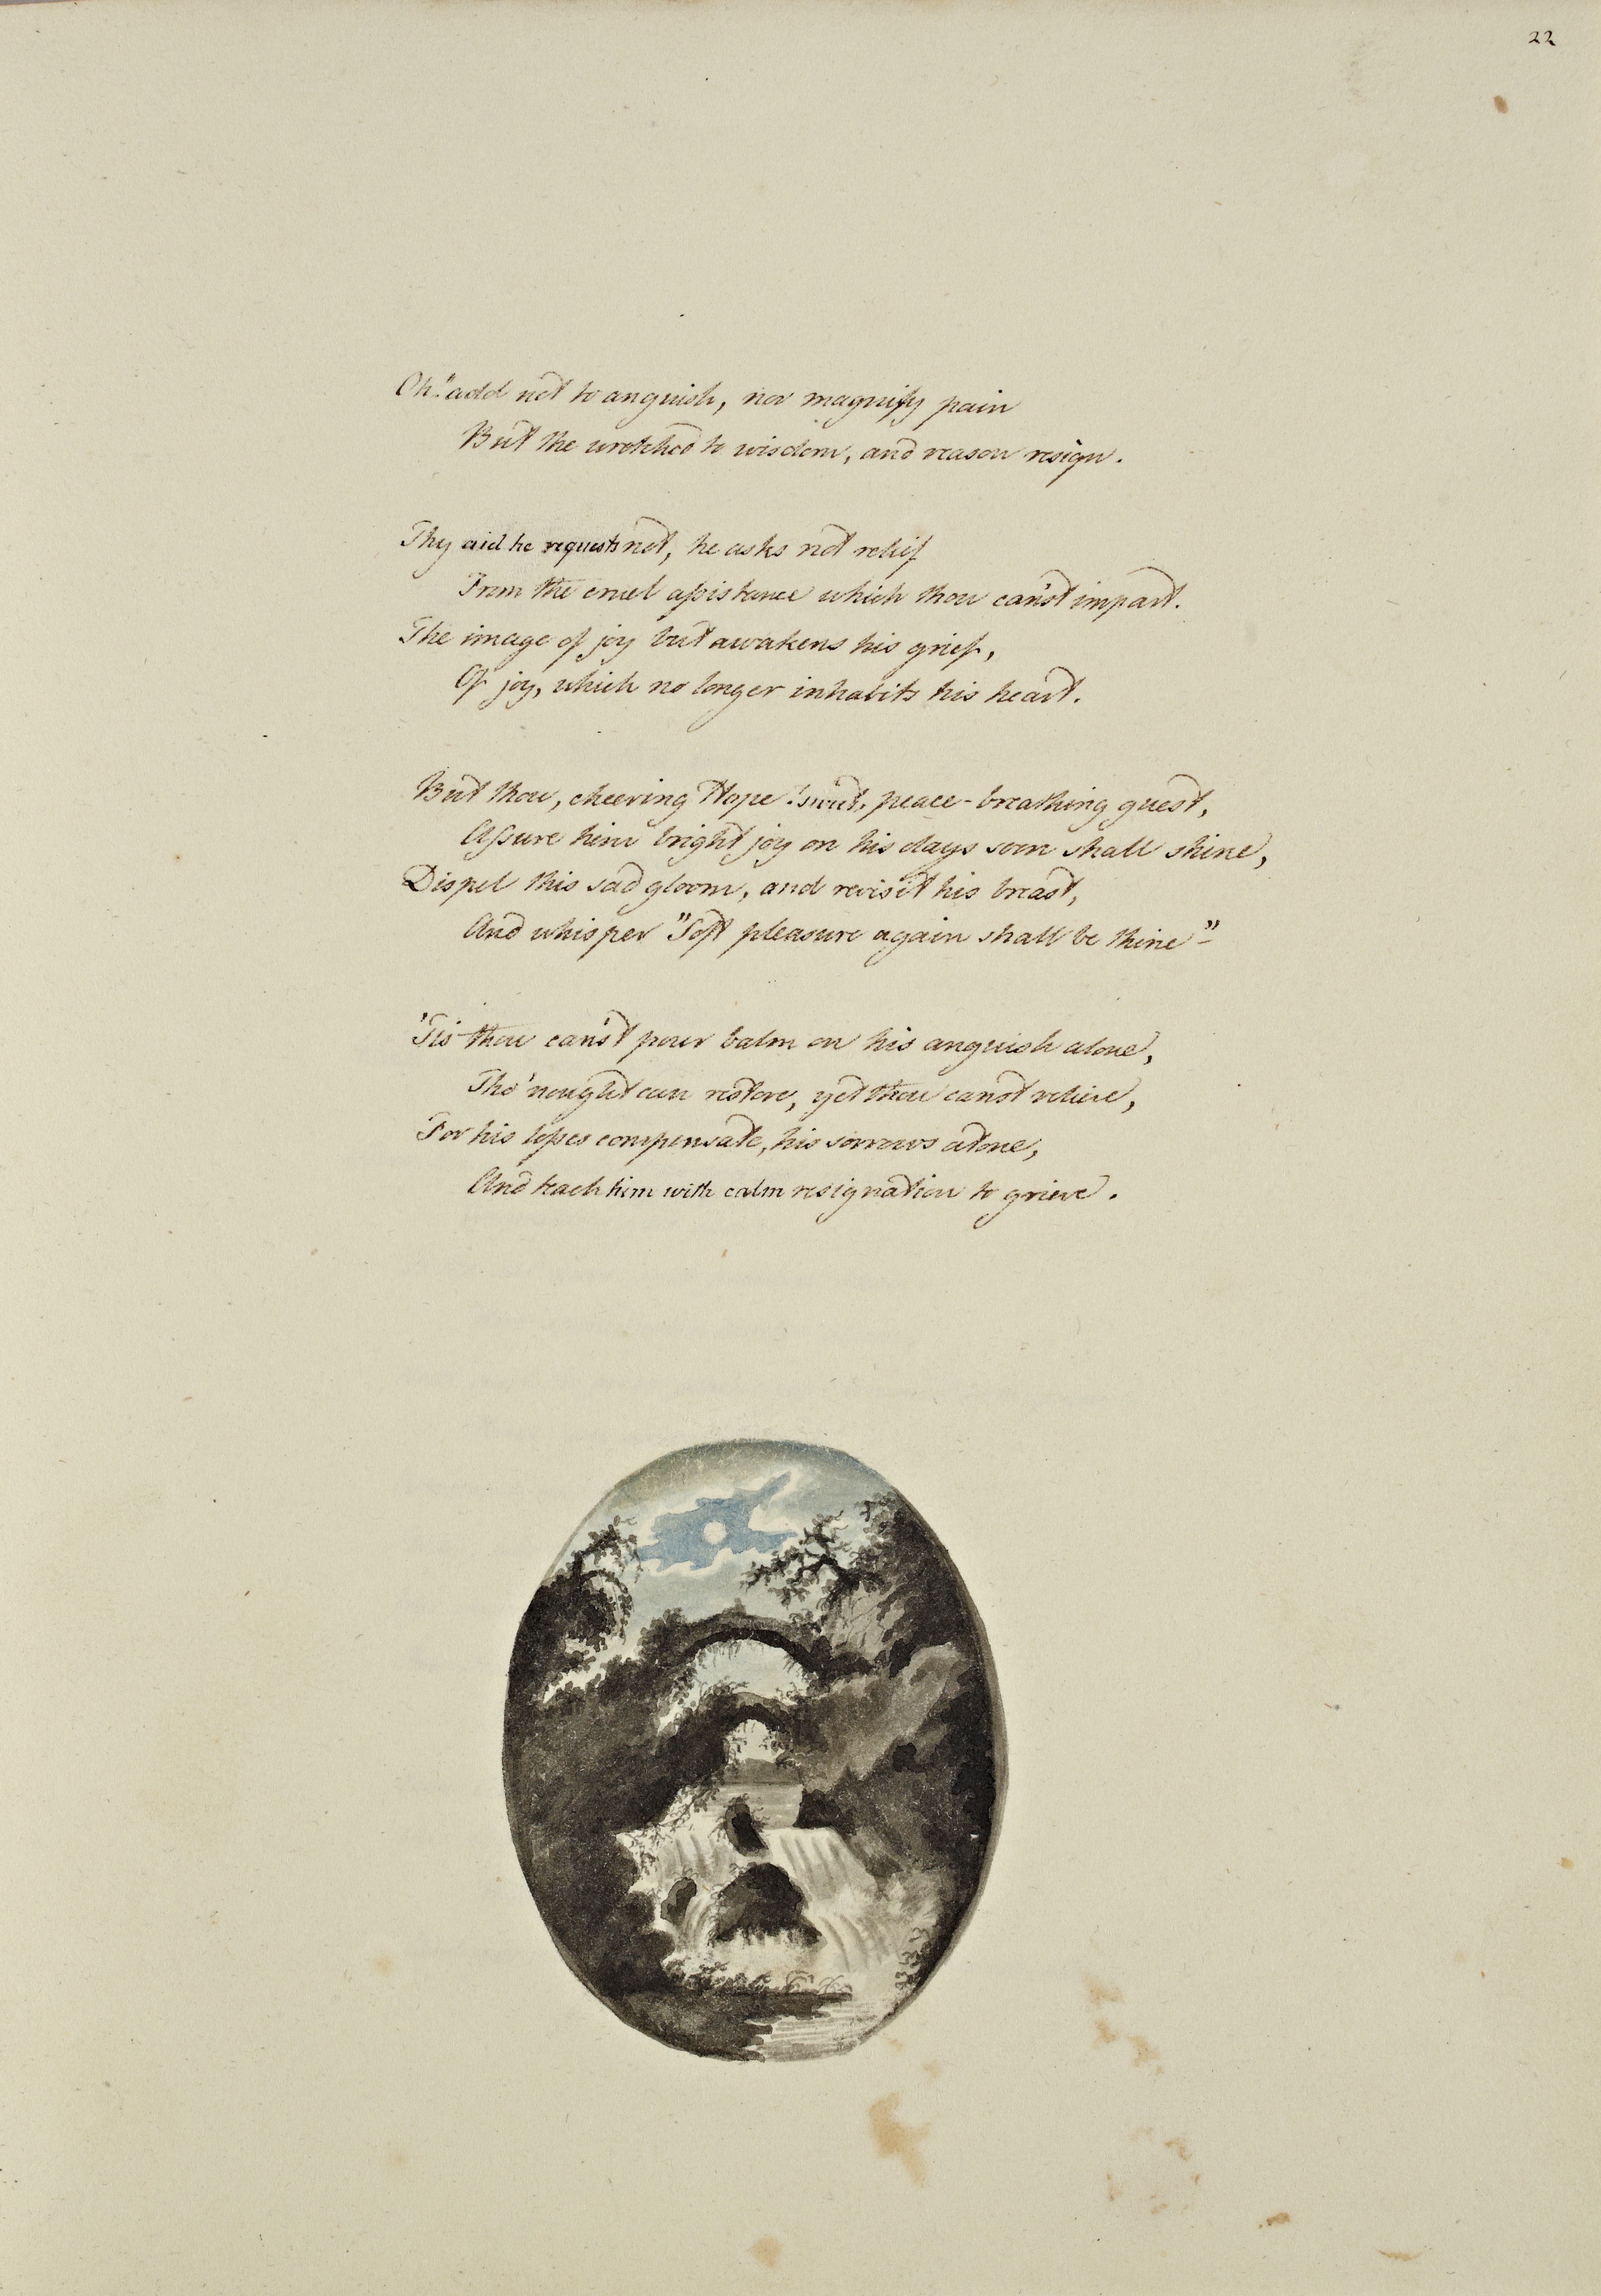 22
Oh! add not to anguish, nor magnify pain
But the wretched to wisdom, and reason resign.
Thy aid he requests not, he asks not relief
From the cruel aſsistance which thou can'st impart.
The image of joy but awakens his grief,
Of joy, which no longer inhabits his heart.
But thou, cheering Hope! sweet, peace-breathing guest,
Aſsure him bright joy on his days soon shall shine,
Dispel this sad gloom, and revisit his breast,
And whisper "Soft pleasure again shall be thine"
'Tis thou can'st pour balm on his anguish alone,
Tho' nought can restore, yet thou canst relieve,
For his loſses compensate, his sorrows atone,
And teach him with calm resignation to grieve.